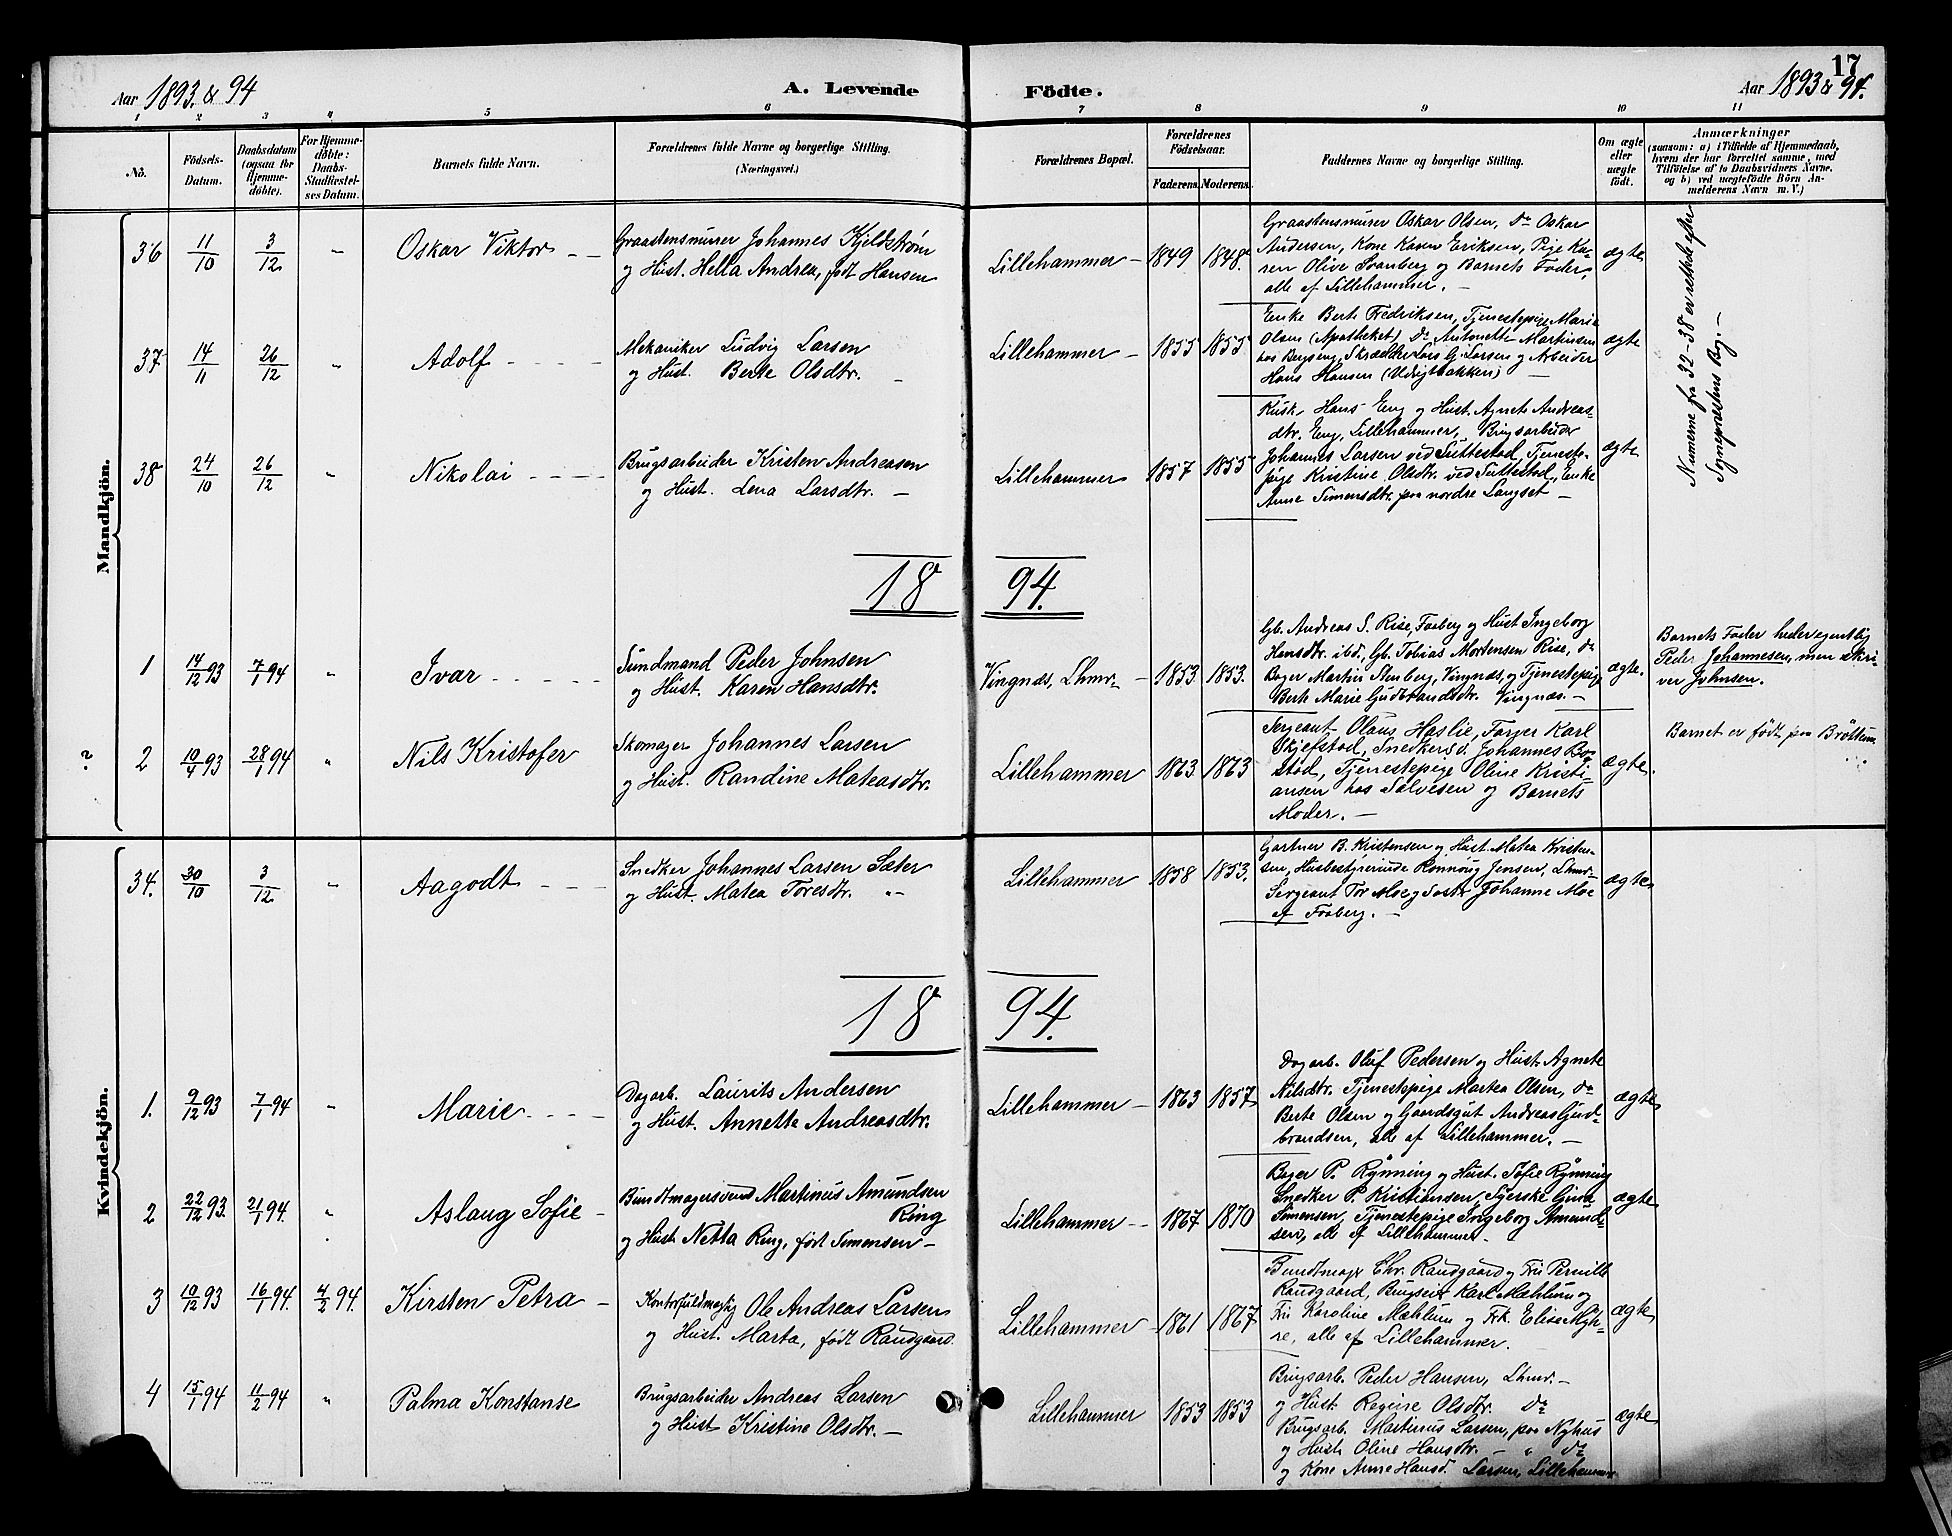 17
Aar 1893 & 94
A. Levende Födte.
Aar 1893 & 94.
1 2 3 4 5 6 7 8 9 10 11
No.
Födsels-
Datum.
Daabsdatum
(ogsaa for
Hjemme-
döbte).
For Hjemme-
döbte:
Daabs-
Stadfæstel-
ses Datum.
Barnets fulde Navn.
Forældrenes fulde Navne og borgerlige Stilling.
(Næringsvei.)
Forældrenes Bopæl.
Forældrenes
Födselsaar.
Faderens. Moderens.
Faddernes Navne og borgerlige Stilling.
Om ægte
eller
uægte
födt.
Anmærkninger
(saasom: a) i Tilfælde af Hjemmedaab,
hvem der har forrettet samme, med
Tilföielse af to Daabsvidners Navne,
og b) ved uægtefödte Börn An-
melderens Navn m. V.)
Mandkjön.
36 11/10 3/12 " Oskar Viktor
Graastensmurer Johannes Kjeldstrøm
og Hust. Hella Andrea, født Hansen
Lillehammer 1849 1848.
Graastensmurer Oskar Olsen, do Oskar
Andersen, Kone Karen Eriksen, Pige Ka-
ren Olive Svanberg og Barnets Fader,
alle af Lillehammer.
ægte
Numerne fra 32-38 er rettede efter
Sogneprestens Bog.
37 14/11 26/12 " Adolf
Mekaniker Ludvig Larsen
og Hust. Berte Olsdtr.
Lillehammer 1855 1855
Enke Berte Fredriksen, Tjenestepige Marie
Olsen (Apotheket) do Antonette Martinsen
hos Bryseng, Skrædder Lars G. Larsen og Arbeider
Hans Hansen
ægte
38 24/10 26/12 " Nikolai
Brugsarbeider Kristen Andreasen
og Hust. Lena Larsdtr.
Lillehammer 1857 1855
Kusk Hans Eng og Hust. Agnete Andreas-
dtr. Eng, Lillehammer, Brugsarbeider
Johannes Larsen ved Suttestad, Tjeneste-
pige Kristine Olsdtr. ved Suttestad, Enke
Anne Simensdtr. paa nordre Langset
ægte
18 94.
1 14/12 93 7/1 94 " Ivar
Sundmand Peder Johnsen
og Hust. Karen Hansdtr.
Vingnæs, Lhmr. 1853 1853.
Gb. Andreas S. Rise, Faaberg og Hust Ingeborg
Hansdtr. ibd., Gb. Tobias Mortensen Rise, do
Bager Martin Stenberg, Vingnæs, og Tjenestepige
Berte Marie Gudbrandsdtr. Vingnæs.
ægte.
Barnets Fader heder egentlig
Peder Johannesen, men skri-
ver Johnsen.
? 2 10/4 93 28/1 94 " Nils Kristofer
Skomager Johannes Larsen
og Hust. Randine Mateasdtr.
Lillehammer 1863 1863
Sergeant Olaus Haslie, Farver Karl
Skjefstad, Snedkersv. Johannes
Tjenestepige Oline Kristi-
ansen hos Salvesen og Barnets
Moder.
ægte.
Barnet er født paa Brøttum
Kvindekjön.
34. 30/10 3/12 " Aagodt
Snedker Johannes Larsen Sæter
og Hust. Matea Toresdtr.
Lillehammer 1858 1853.
Gartner B. Kristensen og Hust. Matea Kristen-
sen, Husbestyrerinde Rønnaug Jensen, Lhmr.
Sergeant Tor Moe og Søster Johanne Moe
af Faaberg.
ægte
18 94.
1. 9/12 93 7/1 94 " Marie
Dagarb. Laurits Andersen
og Hust. Annette Andreasdtr.
Lillehammer 1863 1857
Dagarb. Oluf Pedersen og Hust. Agnete
Nilsdtr. Tjenestepige Martea Olsen, do
Berte Olsen og Gaardsgut Andreas Gud-
brandsen, alle af Lillehammer.
ægte
2 22/12 93. 21/1 94. " Aslaug Sofie
Bundtmagersvend Martinus Amundsen
Ring
og Hust Netta Ring, født Simensen
Lillehammer 1867 1870
Bager P. Rynning og Hust. Sofie Rynning
Snedker P. Kristiansen, Syerske Gina
Simensen, Tjenestepige Ingeborg Amund-
sen, alle af Lillehammer.
ægte
3 10/12 93 16/1 94. 4/2 94. Kirsten Petra
Kontorfuldmægtig Ole Andreas Larsen
og Hust. Marta, født Raudgaard.
Lillehammer 1861 1867
Bundtmager Chr. Raudgaard og Fru Pernille
Raudgaard, Brugseier Karl Mæhlum og
Fru Karoline Mæhlum og Frk. Elise Myh-
re, alle af Lillehammer.
ægte
4 15/1 94 11/2 94 " Palma Konstanse
Brugsarbeider Andreas Larsen
og Hust Kristine Olsdtr.
Lillehammer 1853 1853
Brugsarb. Peder Hansen, Lhmr.
og Hust Regine Olsdtr. do
Brugsarb. Martinus Larsen, paa Nyhus
og Hust. Oline Hansdtr. " do
og Kone Anne Hansd. Larsen, Lillehammer
ægte